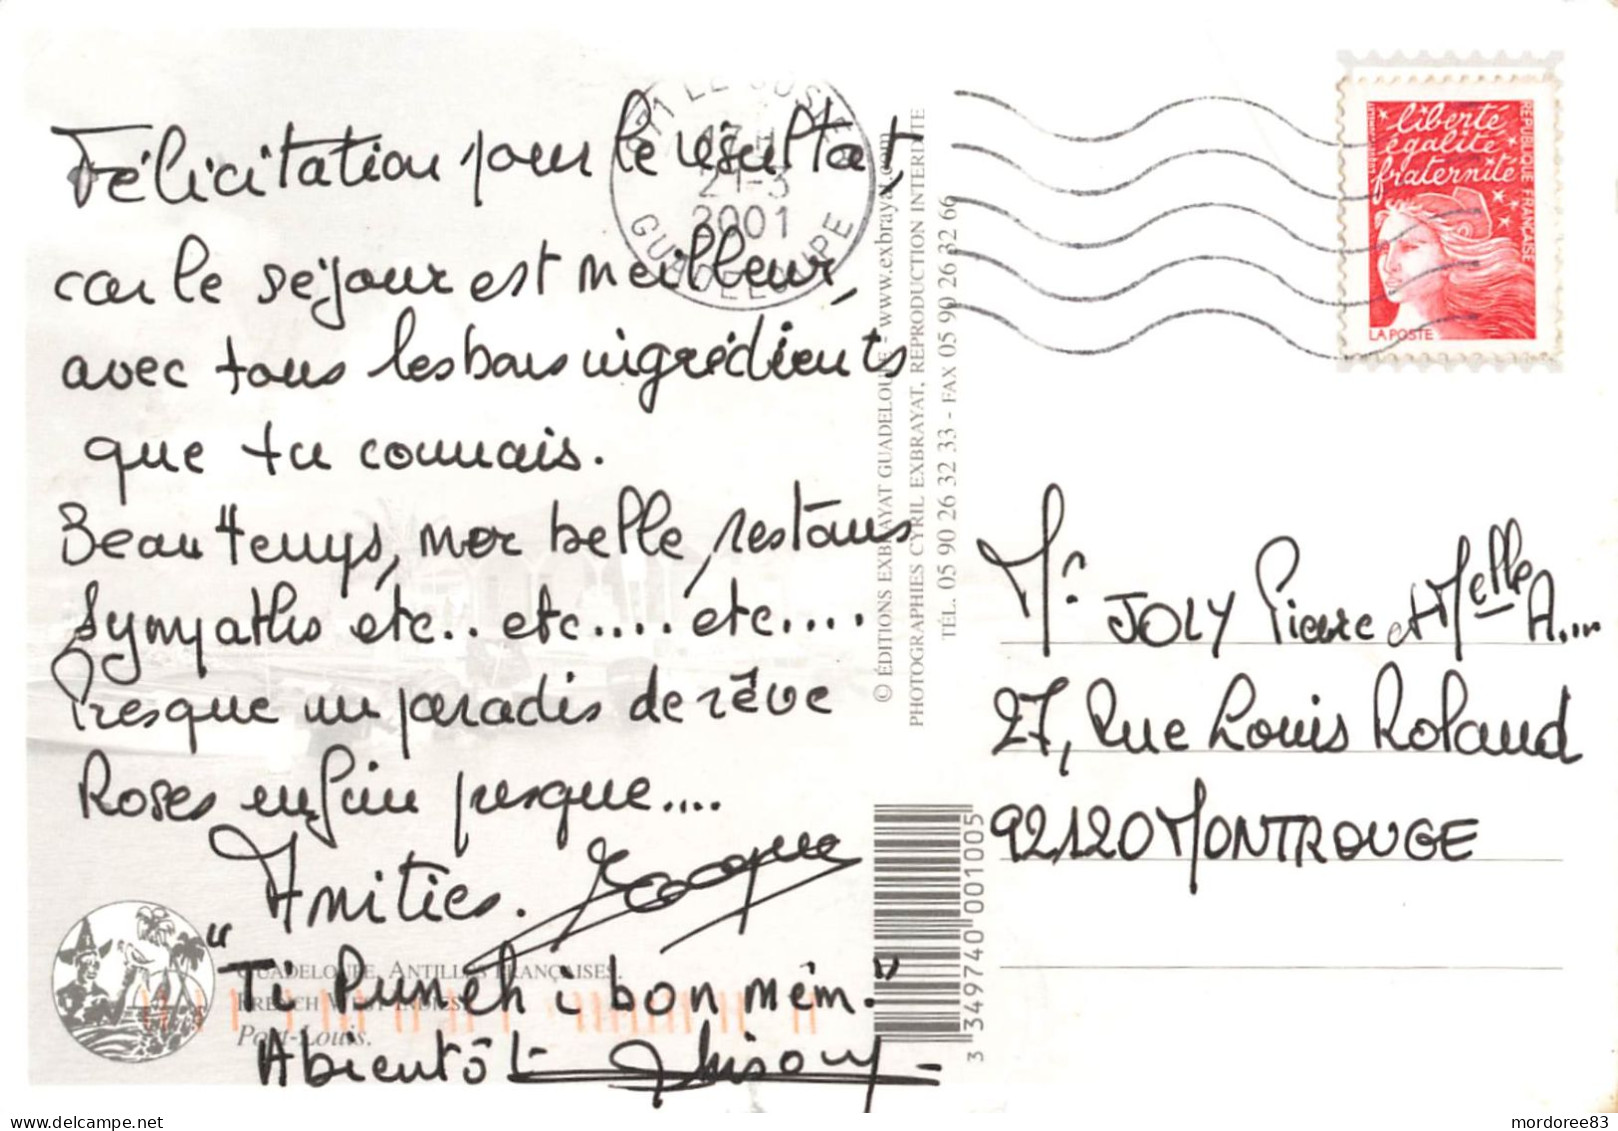 Félicitation pour le résultat,
car le séjour est meilleur,
avec tous les bons ingrédients
que tu connais.
Beau temps, mer belle, restaus
Sympathis etc.. etc.... etc....
Presque un paradis de rêve
Roses enfin presque....
Amitiés.
"Ti Punch i bon mêm."
A bientôt
GUADELOUPE, ANTILLES FRANÇAISES.
FRENCH WEST INDIES.
Port-Louis.
971 LE GOSIER
17 H
21-3
2001
GUADELOUPE
© ÉDITIONS EXBRAYAT GUADELOUPE - www.exbrayat.com
PHOTOGRAPHIES CYRIL EXBRAYAT, REPRODUCTION INTERDITE
TÉL. 05 90 26 32 33 - FAX 05 90 26 32 66
3 349740 001005
liberté
égalité
fraternité
RÉPUBLIQUE FRANÇAISE
LA POSTE
Mr JOLY Pierre et Melle A....
27, Rue Louis Roland
92120 MONTROUGE
mordoree83